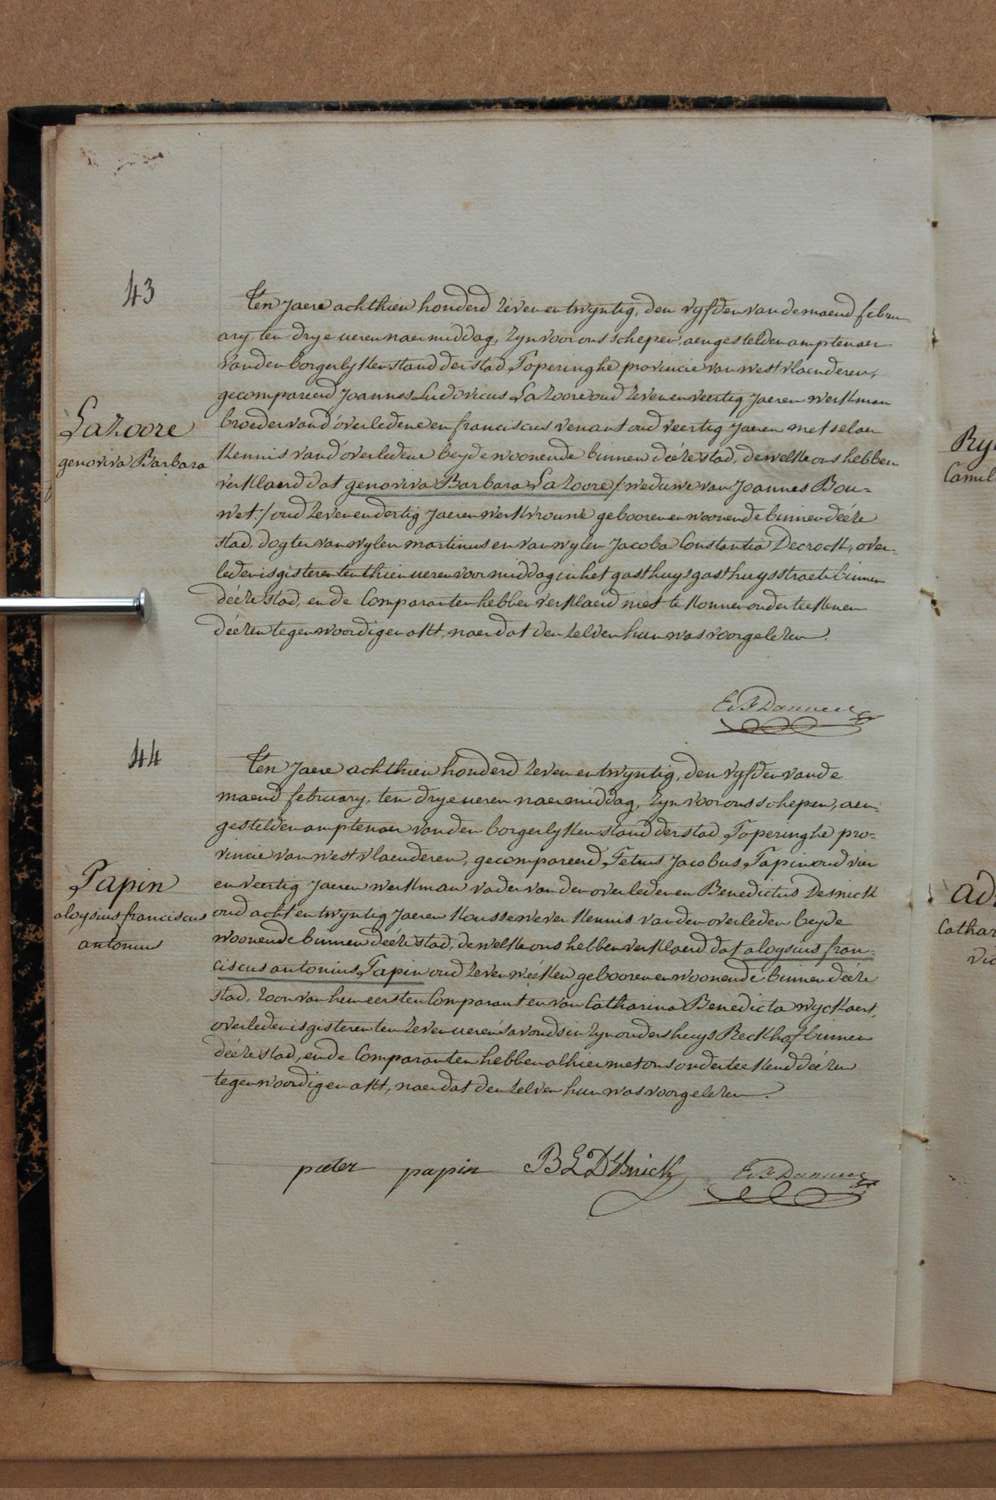 43
Ten Jaere achthien honderd zeven en twyntig, den vyfden van de maend febru-
ary, ten drye ueren naermiddag, Zyn voor ons schepen, aengestelden amptenaer
van den borgerlyken stand der stad Poperinghe provincie van westvlaenderen,
gecompareerd Joannes Ludovicus LaZoore oud zeven en veertig Jaeren werkman
broeder vand'overledene en franciscus venant oud veertig Jaeren metselaer
LaZoore
genoviva Barbara
kennis vand'overledene beyde woonende binnen dééze stad, dewelke ons hebben
verklaerd dat genoviva Barbara LaZoore /weduwe van Joannes Bou-
wet/ oud zeven en dertig Jaeren werkvrouwe gebooren en woonende binnen dééze
stad, dogter van wylen martinus en van wylen Jacoba Constantia Decrock, over-
leden is gisteren ten thien ueren voormiddag in het gasthuys gasthuysstraete binnen
dééze stad, en de Comparanten hebben verklaerd niet te konnen onderteekenen
déézen tegenwoordigen akt, naer dat den zelven hun was voorgelezen.
44
Ten Jaere achthien honderd zeven en twyntig, den vyfden van de
maend february, ten drye ueren naermiddag, Zyn voor ons schepen, aen-
gestelden amptenaer van den borgerlyken stand der stad Poperinghe pro-
vincie van westvlaenderen, gecompareerd Petrus Jacobus Papin oud vier
en veertig Jaeren werkman vader van den overledenen Benedictus Desnick
Papin
aloysius franciscus
antonius
oud acht en twyntig Jaeren koussewever kennis van den overleden beyde
woonende binnen dééze stad, dewelke ons hebben verklaerd dat aloysius fran-
ciscus antonius Papin oud zeven wéeken gebooren en woonende binnen dééze
stad, zoon van hem eersten Comparant en van Catharina Benedicta wyckaert,
overleden is gisteren ten zeven ueren s'avonds in zyn ouders huys Beckhof binnen
dééze stad, en de Comparanten hebben alhier met ons onderteekend déézen
tegenwoordigen akt, naer dat den zelven hun was voorgelezen.
pieter papin